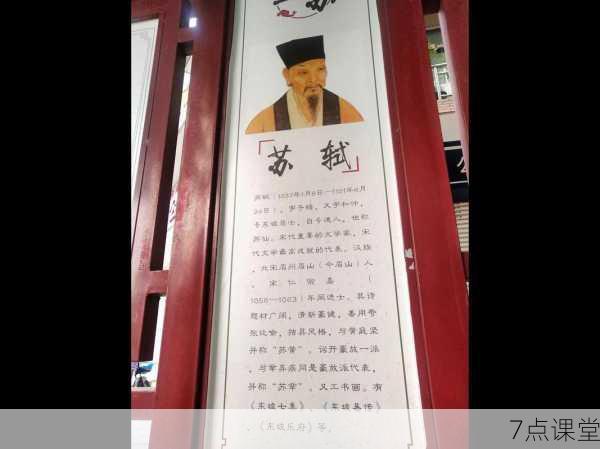 苏轼
苏轼（1037年1月8日—1101年8月
24日），字子瞻，又字和仲，
号东坡居士，自号道人，世称
苏仙。宋代重要的文学家，宋
代文学最高成就的代表。汉族
，北宋眉州眉山（今眉山）人
。宋仁宗嘉
（1056—1063）年间进士。其诗
题材广阔，清新豪健，善用夸
张比喻，独具风格，与黄庭坚
并称“苏黄”。词开豪放一派
，与辛弃疾同是豪放派代表，
并称“苏辛”。又工书画。有
《东坡七集》、《东坡易传》
、《东坡乐府》等。
7点课堂